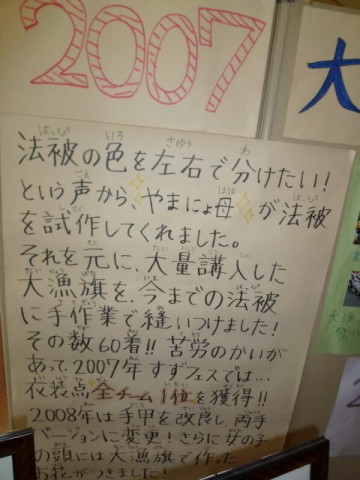 2007
大
法被の色を左右で分けたい!
という声から、やまにょ母が法被
を試作してくれました。
それを元に、大量講入した
大漁旗を、今までの法被
に手作業で縫いつけました!
その数60着!!苦労のかいが
あって、2007年すずフェスでは…
衣装点全チーム1位を獲得!!
2008年は手甲を改良し、両手
バージョンに変更!さらに女の子
の頭には大漁旗で作った
お花がつきました!